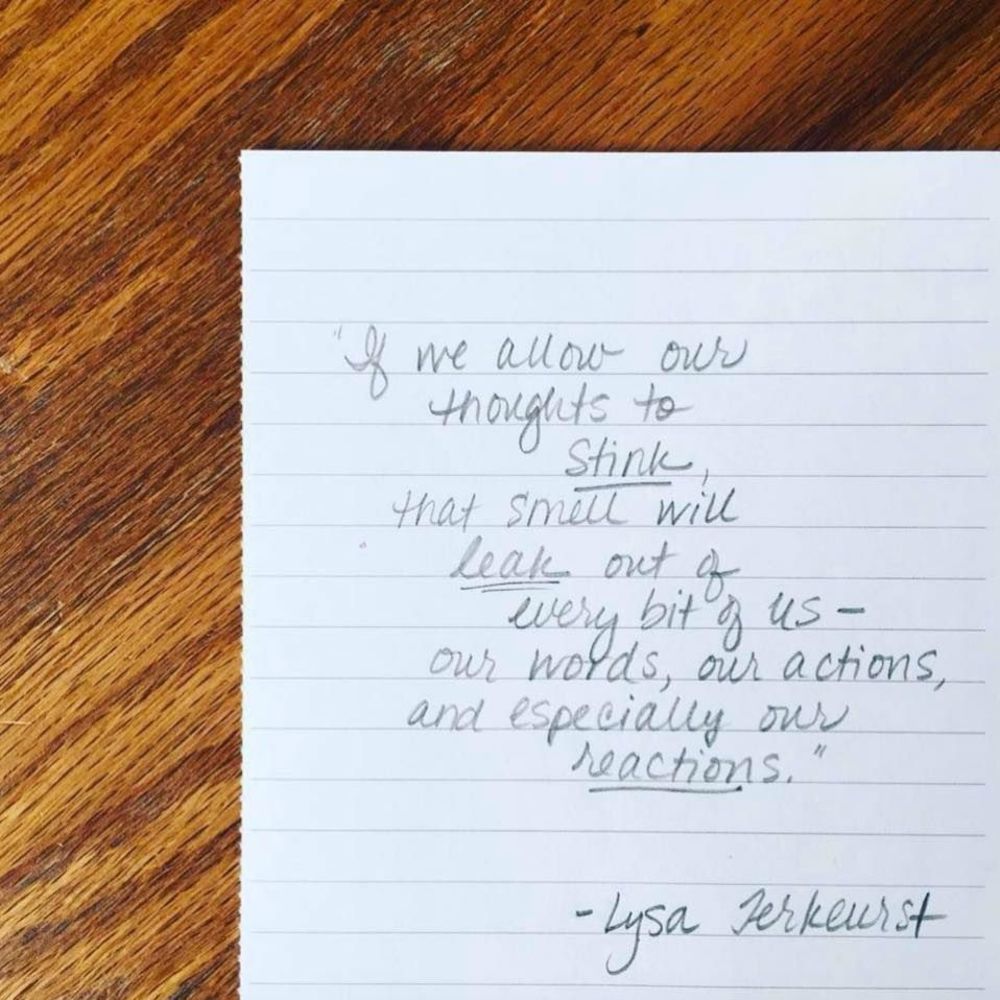 "If we allow our
thoughts to
stink,
that smell will
leak out of
every bit of us –
our words, our actions,
and especially our
reactions."
- Lysa Terkeurst